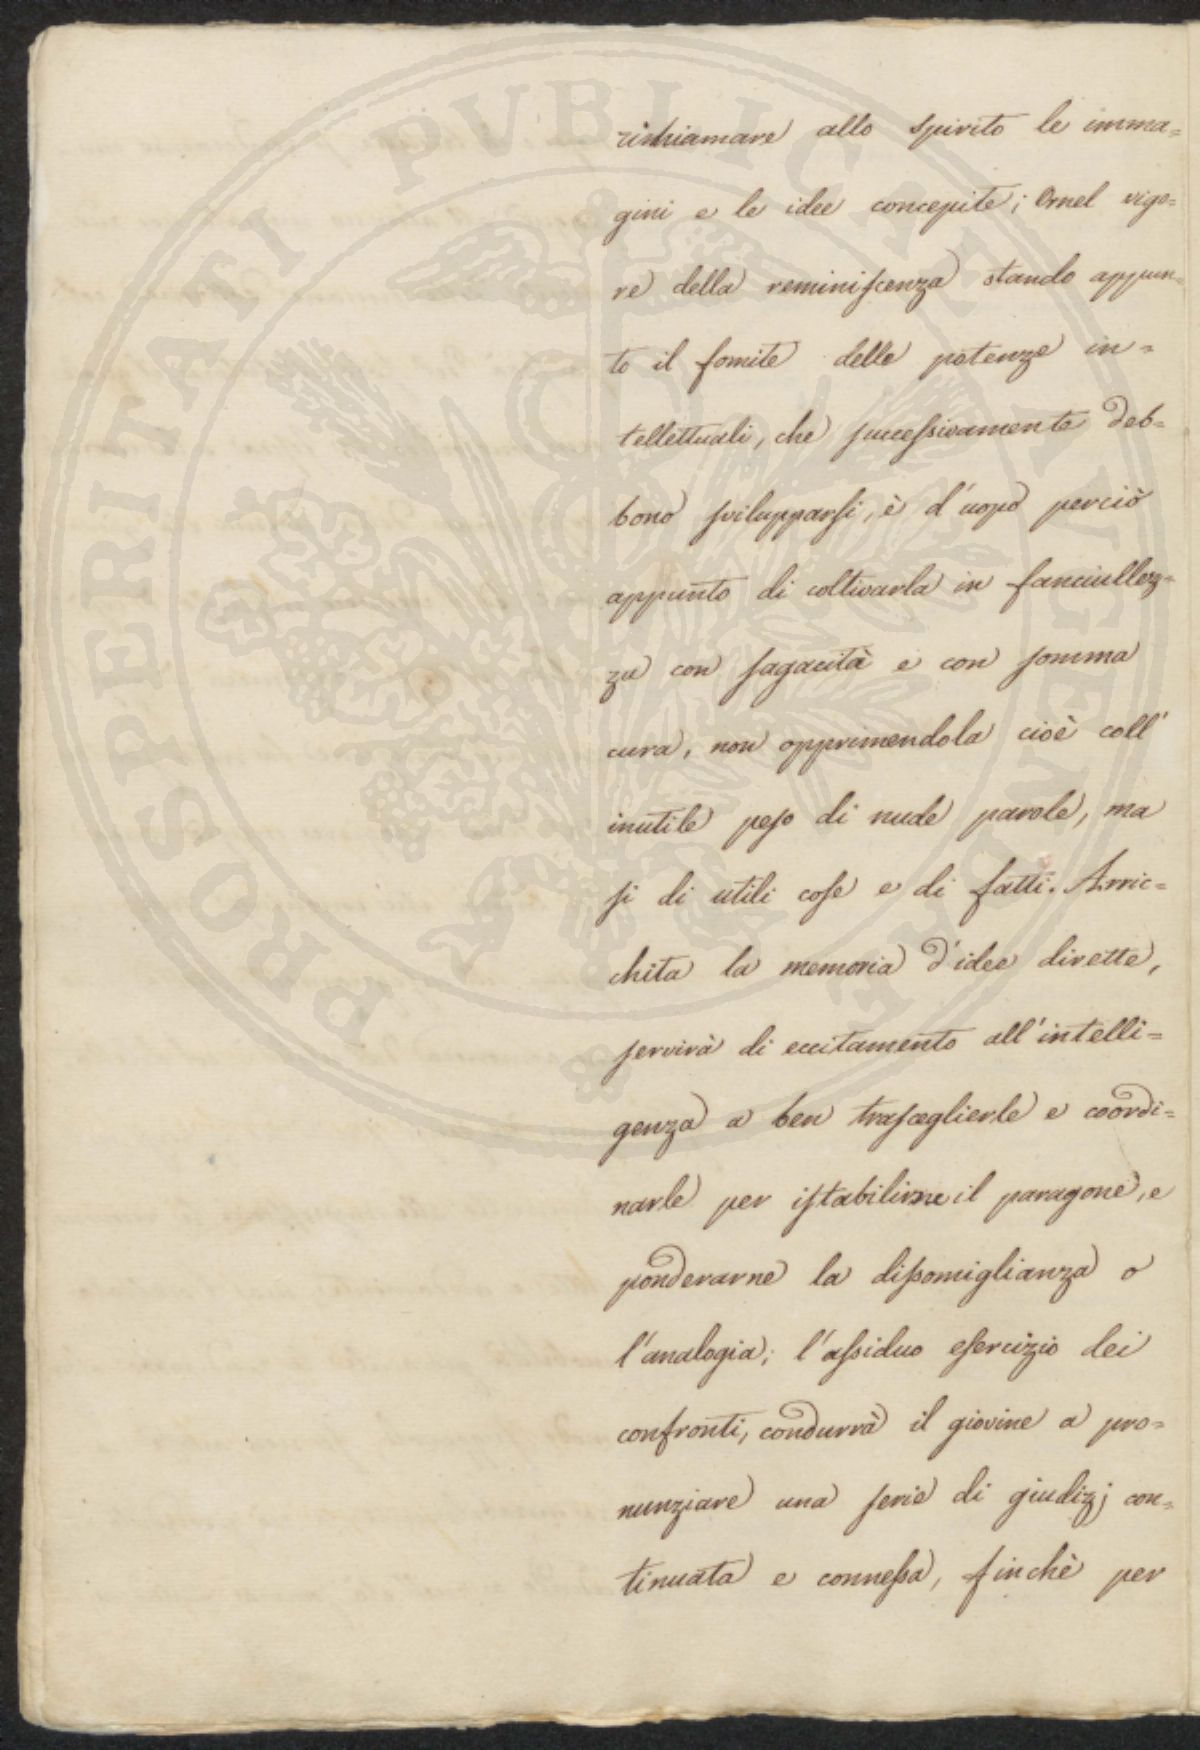 PROSPERITATI PUBLICAE AUGENDAE
richiamare allo spirito le imma=
gini e le idee concepite; Or nel vigo=
re della reminiscenza stando appun=
to il fomite delle potenze in=
tellettuali, che successivamente deb=
bono svilupparsi, è d'uopo perciò
appunto di coltivarla in fanciullez=
za con sagacità e con somma
cura, non opprimendola cioè coll'
inutile peso di nude parole, ma
si di utili cose e di fatti. Arric=
chita la memoria d'idee dirette,
servirà di eccitamento all'intelli=
genza a ben trasceglierle e coordi=
narle per istabilirne il paragone, e
ponderarne la dissomiglianza o
l'analogia; l'assiduo esercizio dei
confronti, condurrà il giovine a pro=
nunziare una serie di giudizj con=
tinuata e connessa, finchè per